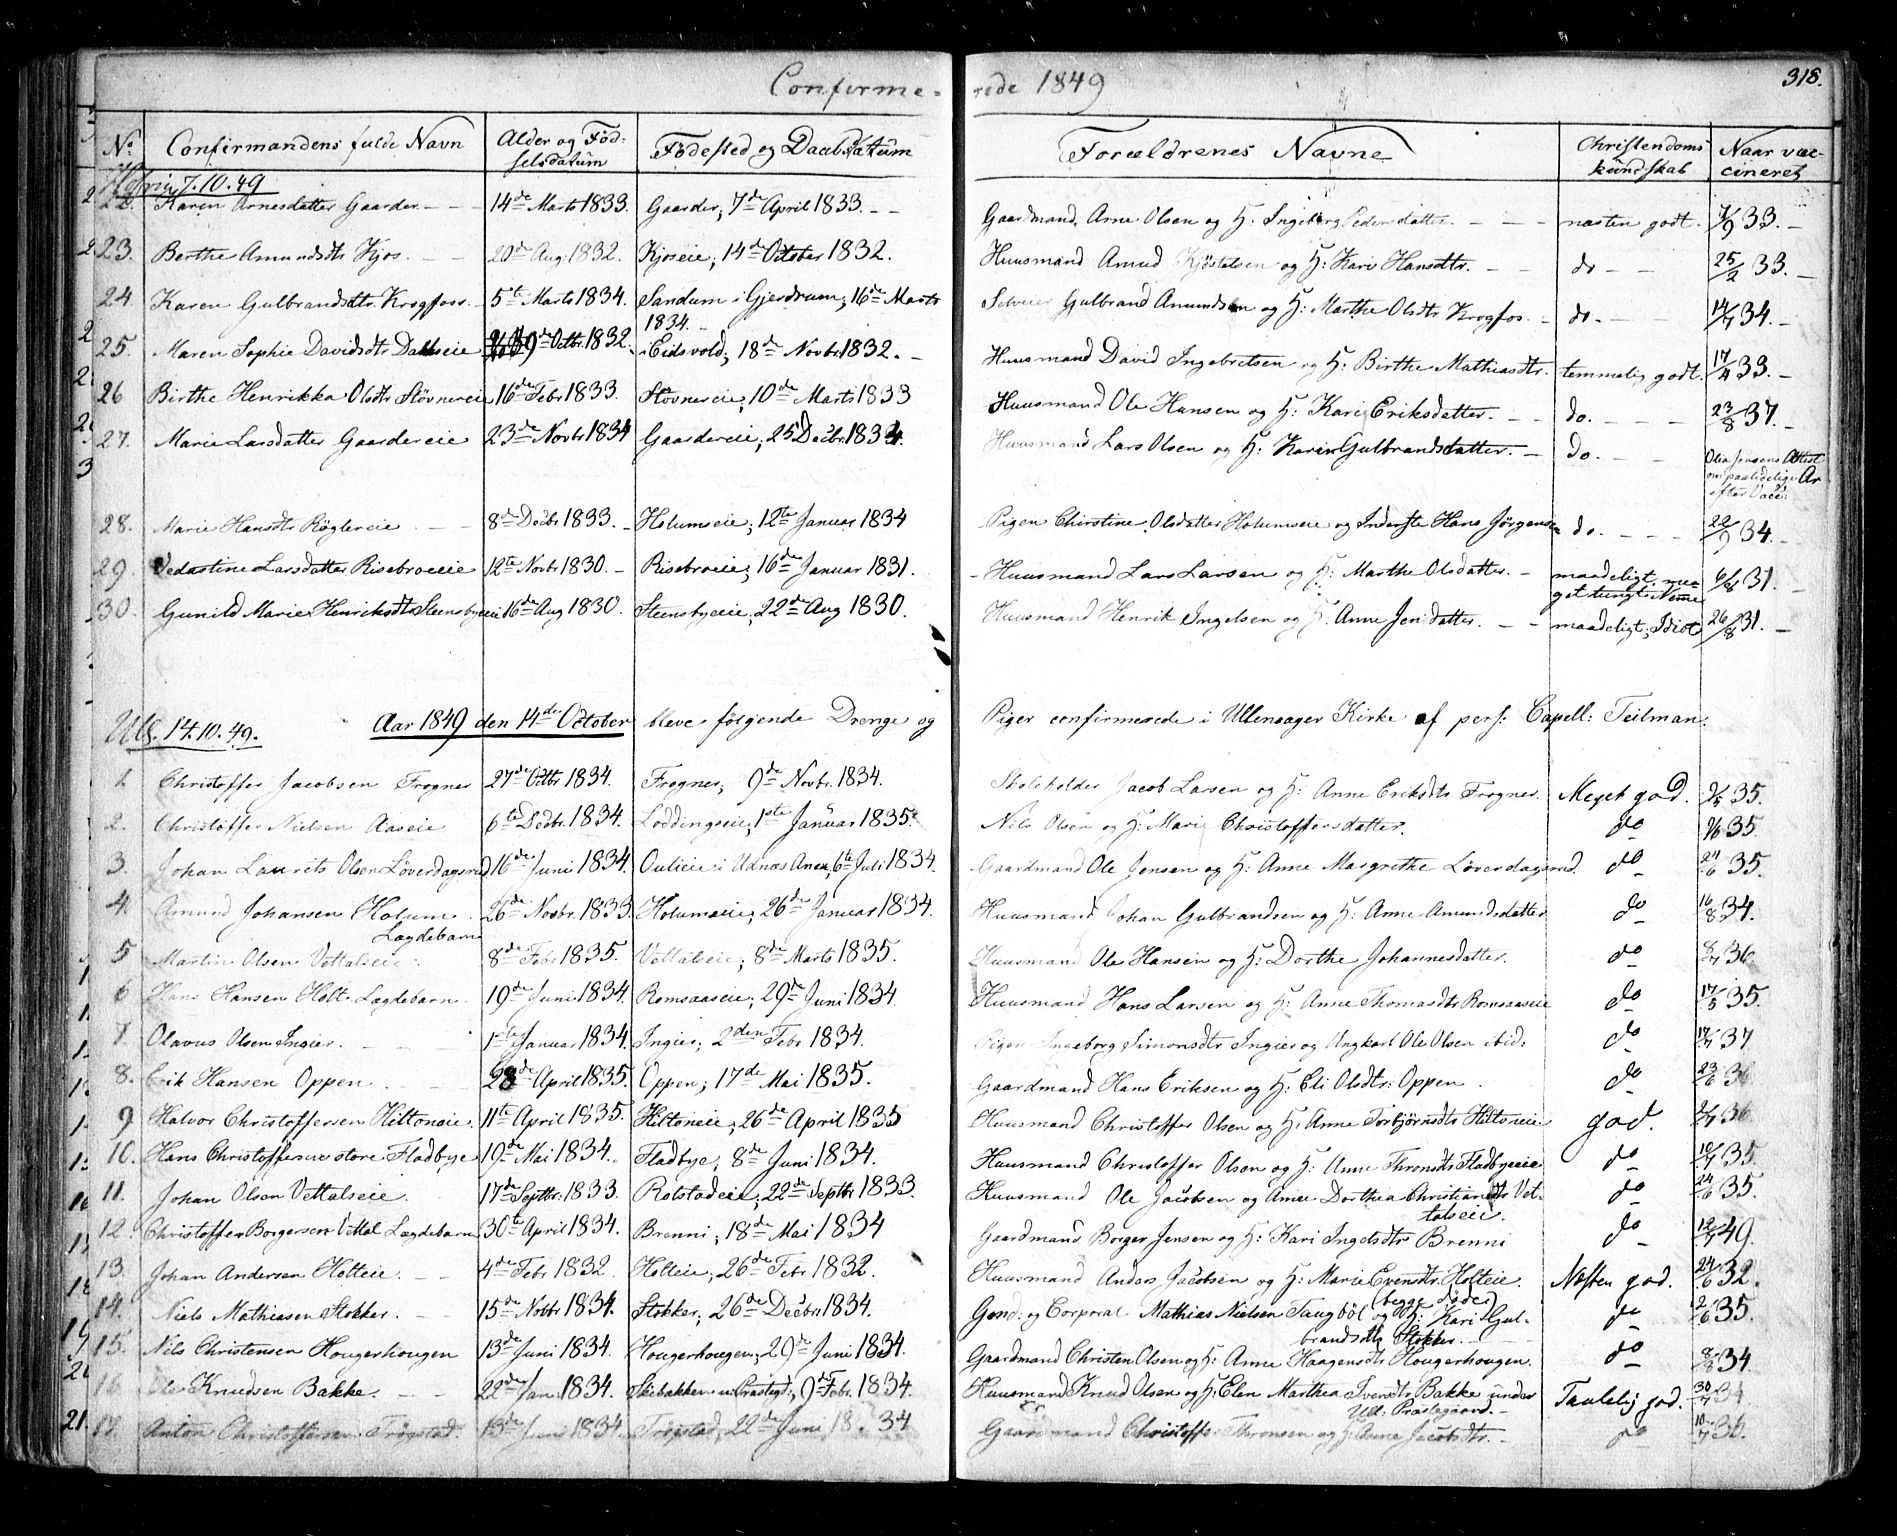 Confirme- rede 1849
318.
No Confirmandens fulde Navn Alder og Fød- Fødested og Daabsdatum Forældrenes Navne Christendoms Naar vac-
selsdatum kundskab cineret
7.10.49
22. Karen Arnesdatter Gaarder. 14de Marts 1833. Gaarder, 7de April 1833. Gaardmand Arne Olsen og H: Ingeborg Pedersdatter. næsten godt. 7/9 33.
23. Berthe Amundsdtr Kjos. 20de Aug. 1832. Kjoseie, 14de October 1832. Huusmand Amund Kjøstelsen og H: Kari Hansdtr. do 25/2 33.
24 Karen Gulbrandsdtr. Krogfoss. 5te Marts 1834. Sandum i Gjerdrum, 16de Marts Selveier Gulbrand Amundsen og H: Marthe Olsdtr Krogfos. do. 14/7 34.
1834.
25. Maren Sophie Davidsdtr Dahlseie 9de Octbr. 1832. i Eidsvold, 18de Novbr 1832. Huusmand David Ingebretsen og H: Birthe Mathiasdtr. temmelig godt. 17/4 33.
26 Birthe Henrikka Olsdtr Støvnereie 16de Febr 1833. Støvnereie, 10de Marts 1833 Huusmand Ole Hansen og H: Kari Eriksdatter. do. 23/8 37.
27. Marie Larsdatter Gaardereie 23de Novbr 1834 Gaardereie, 25 Decbr. 1834. Huusmand Lars Olsen og H: Karin Gulbrandsdatter. do. Olia Jensens Attest
om paalidelige Ar
efter Vacc:
28. Marie Hansdtr Røglereie 8de Decbr 1833. Holumseie, 12te Januar 1834 Pigen Chirstine Olsdatter Holumseie og Inderste Hans Jørgensen do. 22/9 34.
29. Vedastine Larsdatter Risebroeie 12te Novbr 1830. Risebroeie, 16de Januar 1831. Huusmand Lars Larsen og H: Marthe Olsdatter. maadeligt, me- 6/8 31.
get tungt Nemme
30. Gunild Marie Henriksdtr Steensbyeie 16de Aug 1830. Steensbyeie, 22de Aug 1830. Huusmand Henrik Ingelsen og H: Anne Jensdatter. maadeligt, Idiot 26/8 31.
Ull. 14.10.49. Aar 1849 den 14de October bleve følgende Drenge og Piger confirmerede i Ullensager Kirke af pers: Capell: Teilman.
1. Christoffer Jacobsen Frogner 27de Octbr 1834. Frogner, 9de Novbr. 1834. Skoleholder Jacob Larsen og H: Anne Eriksdtr Frogner. Meget god. 9/5 35.
2. Christoffer Nielsen Aaseie 6te Decbr. 1834. Loddingseie, 1ste Januar 1835. Nils Olsen og H: Mari Christoffersdatter. do 35.
3. Johan Laurits Olsen Løverdagsrud 16de Juni 1834. Oulieie i Udnæs Anex, 6te Juli 1834. Gaardmand Ole Jensen og H: Anne Margrethe Løverdagsrud. do 24/6 35.
4. Amund Johansen Holum 26de Novbr. 1833. Holumseie, 26de Januar 1834. Huusmand Johan Gulbrandsen og H: Anne Amundsdatter do 16/8 34.
Lægdebarn
5 Martin Olsen Vettalseie 8de Febr 1835. Vettalseie, 8de Marts 1835. Huusmand Ole Hansen og H: Dorthe Johannesdatter. do 8/7 36.
6 Hans Hansen Holt. Lægdebarn. 19de Juni 1834. Romsaaseie, 29de Juni 1834. Huusmand Hans Larsen og H: Anne Thomasdtr Romsaaseie do 17/5 35.
7. Olavus Olsen Ingier. 1ste Januar 1834. Ingier, 2den Febr 1834. Pigen Ingeborg Simonsdtr Ingier og Ungkarl Ole Olsen ibid: do 17/7 37
8. Erik Hansen Oppen 28de April 1835. Oppen, 17de Mai 1835. Gaardmand Hans Eriksen og H: Eli Olsdtr: Oppen. do 23/6 36
9 Halvor Christoffersen Hiltoneie. 11te April 1835. Hiltoneie, 26de April 1835 Huusmand Christoffer Olsen og H: Anne Torbjørnsdtr Hiltoneie god. 2/7 36.
10. Hans Christoffersen store Fladbye 19de Mai 1834. Fladbye, 8de Juni 1834. Huusmand Christoffer Olsen og H: Anne Thronsdtr Fladbyeeie do 10/7 35.
11. Johan Olsen Vettalseie. 17de Septbr. 1833. Rolstadeie, 22de Septbr 1833. Huusmand Ole Jacobsen og Anne Dorthea Christiansdtr Vet- do 24/6 35.
talseie.
12. Christoffer Borgersen Vettal Lægdebarn 30te April 1834. Brenni, 18de Mai 1834 Gaardmand Borger Jensen og H: Kari Ingelsdtr Brenni do 12/7 49.
13. Johan Andersen Holteie. 4de Febr 1832 Holteie, 26de Febr 1832. Huusmand Anders Jacobsen og H: Marie Evensdtr. Holteie. Næsten god. 24/6 32.
(begge døde)
14. Niels Mathiesen Stokker. 15de Novbr 1834. Stokker, 26de Decbr. 1834. Gend: og Corporal Mathias Nielsen Taugbøl og H: Kari Gul- do 2/6 35.
brandsdtr Stokker.
15. Nils Christensen Hougerhougen 13de Juni 1834. Hougerhougen, 29de Juni 1834. Gaardmand Christen Olsen og H: Anne Haagensdtr Hougerhougen. do 8/8 34.
16. Ole Knudsen Bakke. 22de Jan. 1834. Skibakken u: Præstegd:, 9de Febr. 1834. Huusmand Knud Olsen og H: Elen Marthea Svendsdtr Bakke under Taalelig god. 30/7 34
Ull: Præstegaard.
17. Anton Christoffersen Trøgstad. 13de Juni 1834. Trøgstad, 22de Juni 1834 Gaardmand Christoffer Thronsen og H: Anne Jacobsdtr. do 10/7 36.